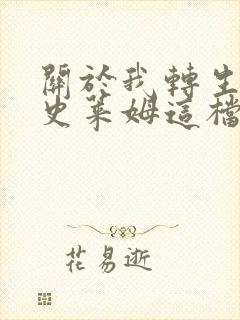 關於我轉生
史萊姆這檔
花易逝